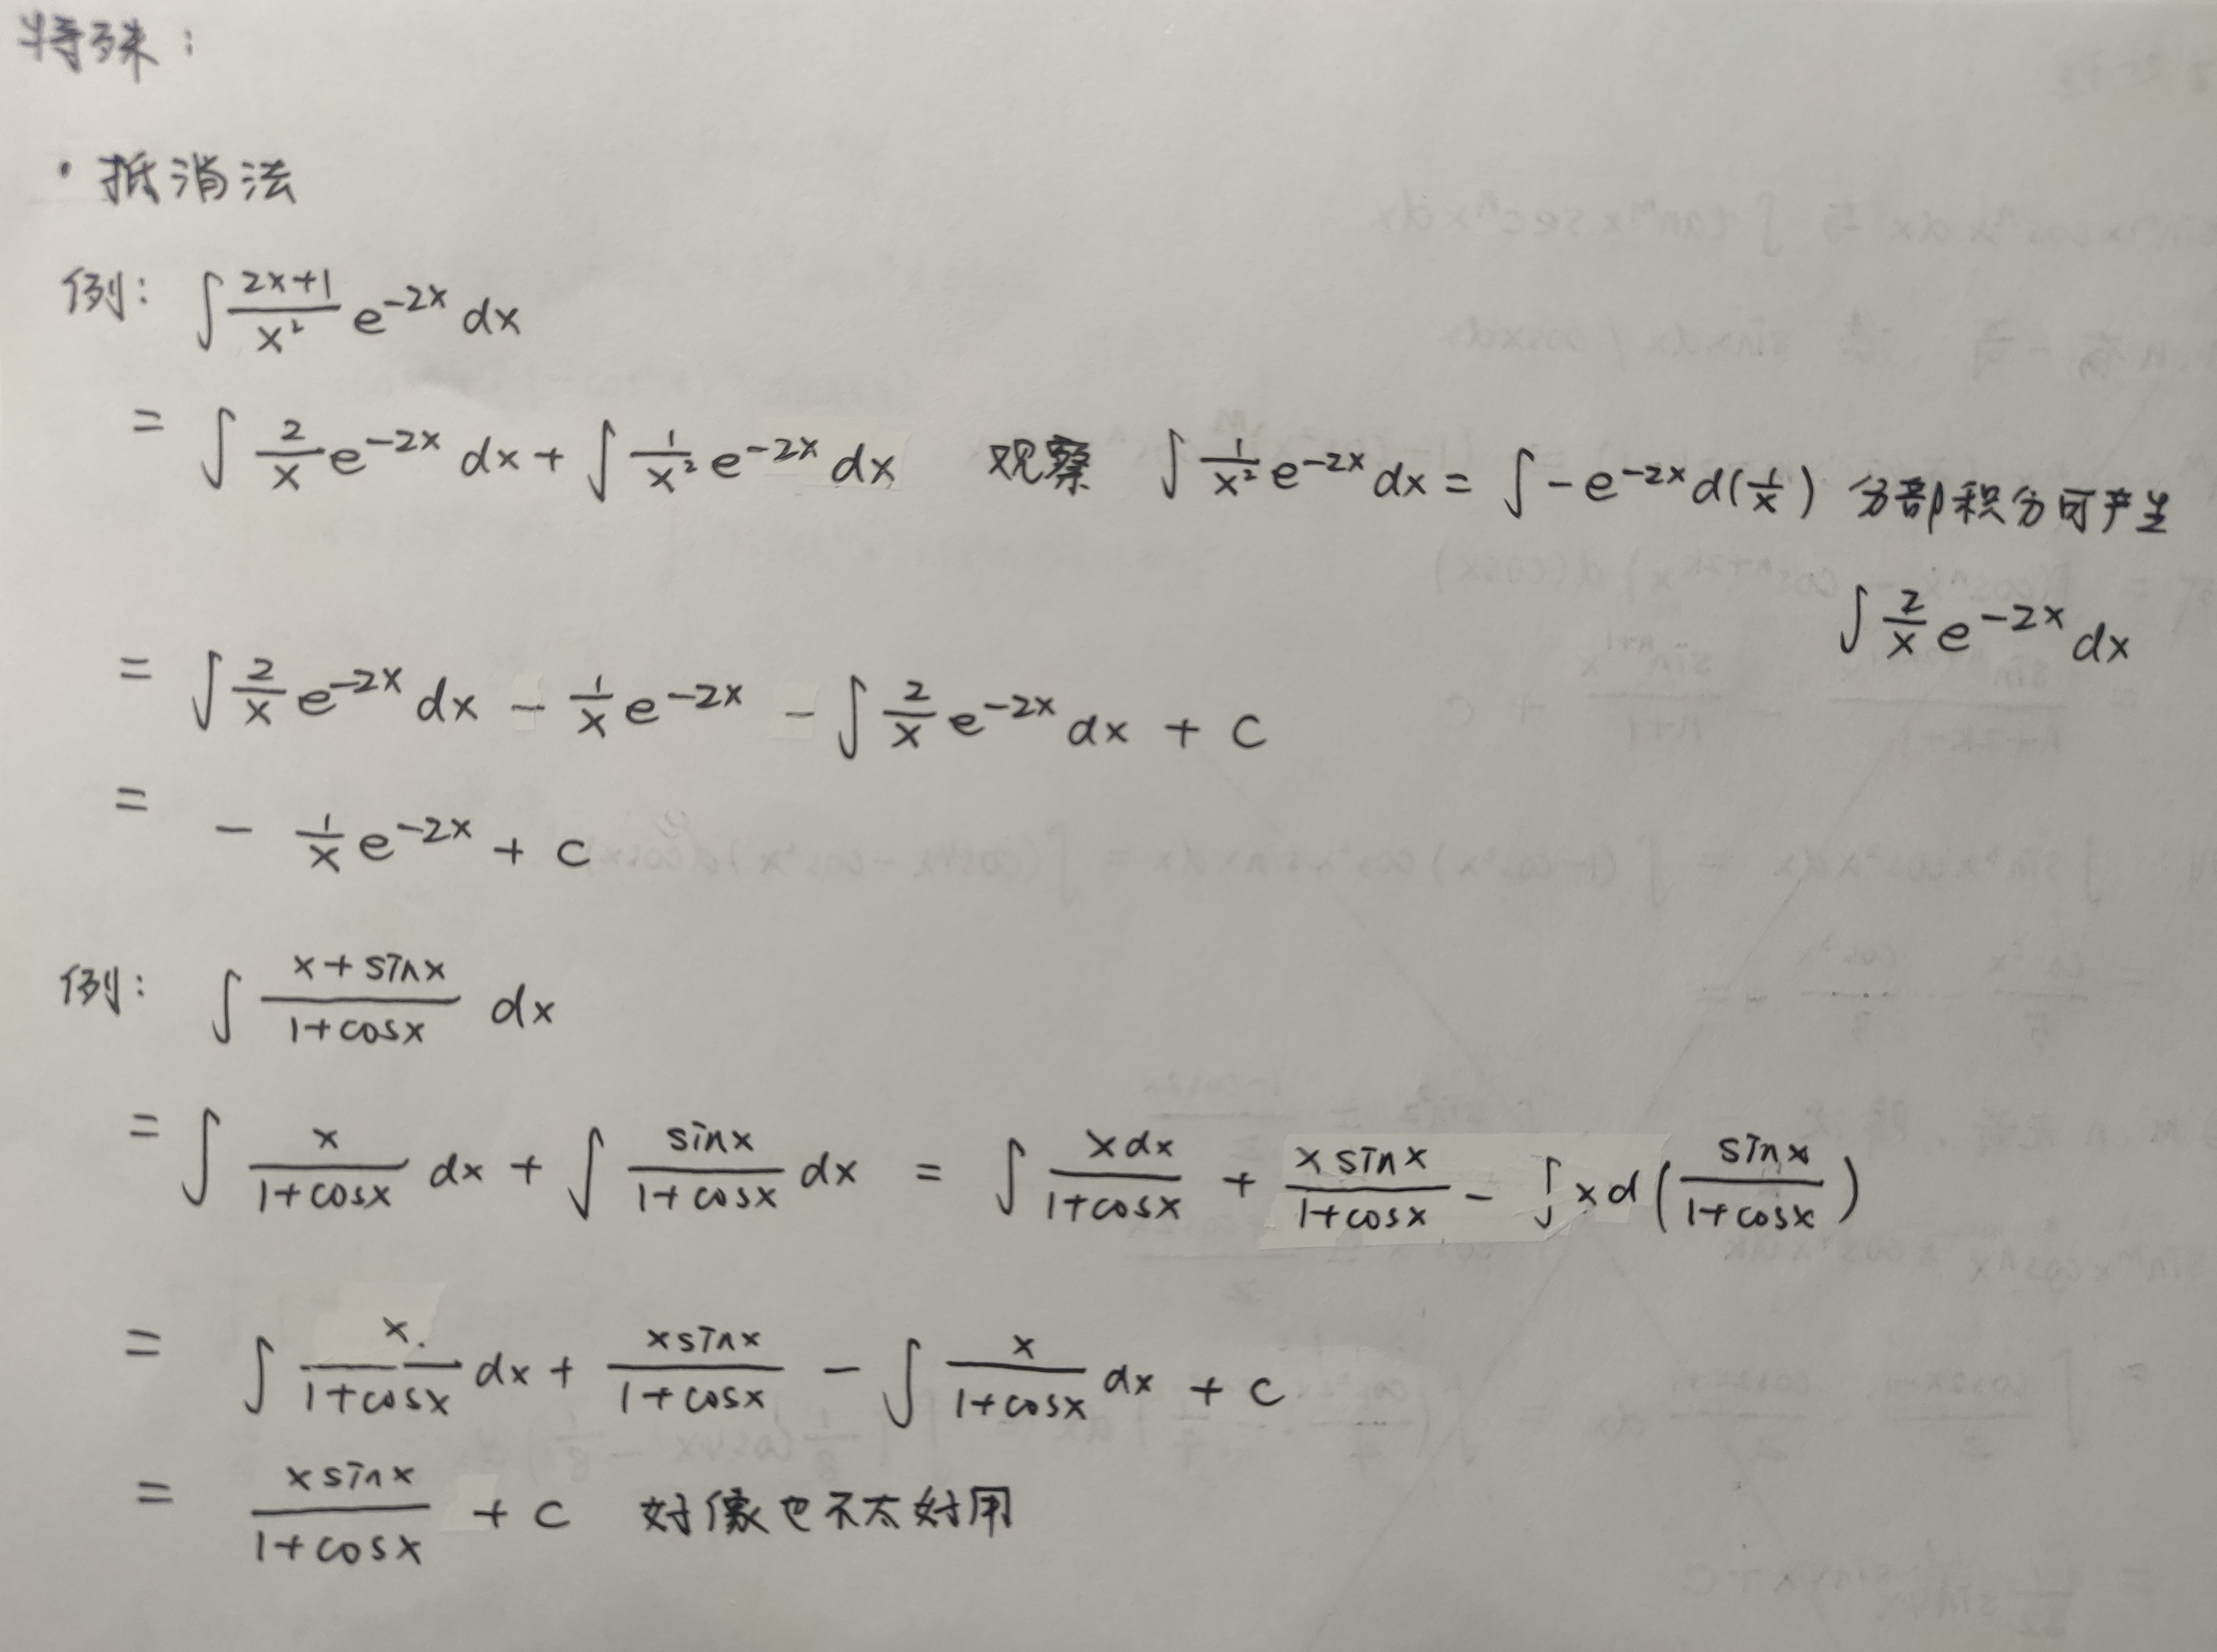 特殊：
· 抵消法
例: ∫ (2x+1)/x² e^(-2x) dx
= ∫ 2/x e^(-2x) dx + ∫ 1/x² e^(-2x) dx 观察 ∫ 1/x² e^(-2x) dx = ∫ -e^(-2x) d(1/x) 分部积分可产生
∫ 2/x e^(-2x) dx
= ∫ 2/x e^(-2x) dx - 1/x e^(-2x) - ∫ 2/x e^(-2x) dx + C
= - 1/x e^(-2x) + C
例: ∫ (x+sinx)/(1+cosx) dx
= ∫ x/(1+cosx) dx + ∫ sinx/(1+cosx) dx = ∫ xdx/(1+cosx) + xsinx/(1+cosx) - ∫ xd(sinx/(1+cosx))
= ∫ x/(1+cosx) dx + xsinx/(1+cosx) - ∫ x/(1+cosx) dx + C
= xsinx/(1+cosx) + C 好像也不太好用